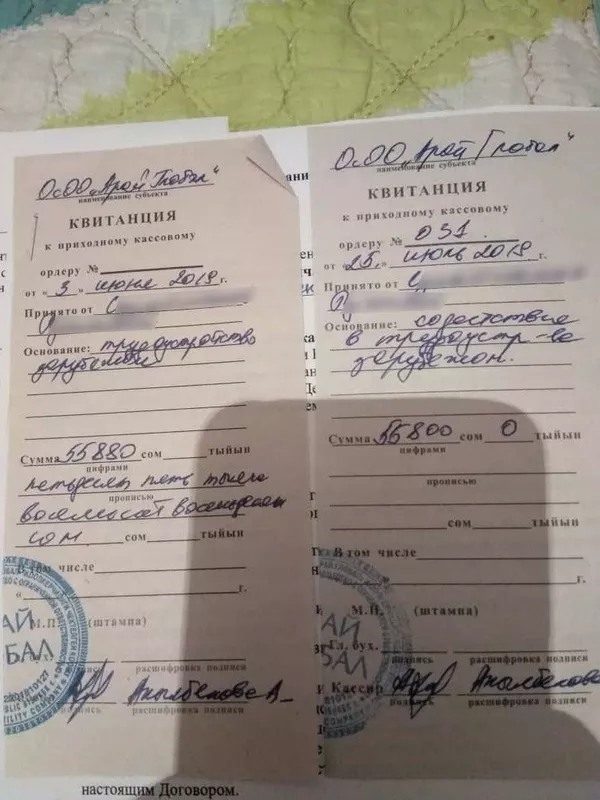 ОсОО „Арай Глобал"
наименование субъекта
КВИТАНЦИЯ
к приходному кассовому
ордеру №
от « 3 » июня 2019 г.
Принято от С
Основание: трудоустройство
зарубежом
Сумма 55880 сом тыйын
цифрами
петьдесят пять тысяч
прописью
восемьсот восемьдесят
сом сом тыйын
В том числе
« г.
М.П. (штампа)
Гл. бух.
подпись расшифровка подписи
Акылбекова А
подпись расшифровка подписи
АЙ
БАЛ
ОсОО „Арай Глобал"
наименование субъекта
КВИТАНЦИЯ
к приходному кассовому
ордеру № 031
от « 25 » июль 2019 г.
Принято от С
Основание: содействие
в трудоустр-ве
зарубежом.
Сумма 55800 сом 0 тыйын
цифрами
прописью
сом тыйын
В том числе
г.
М.П. (штампа)
Гл. бух.
подпись расшифровка подписи
Кассир Акылбекова
подпись расшифровка подписи
АЙ
БАЛ
настоящим Договором.